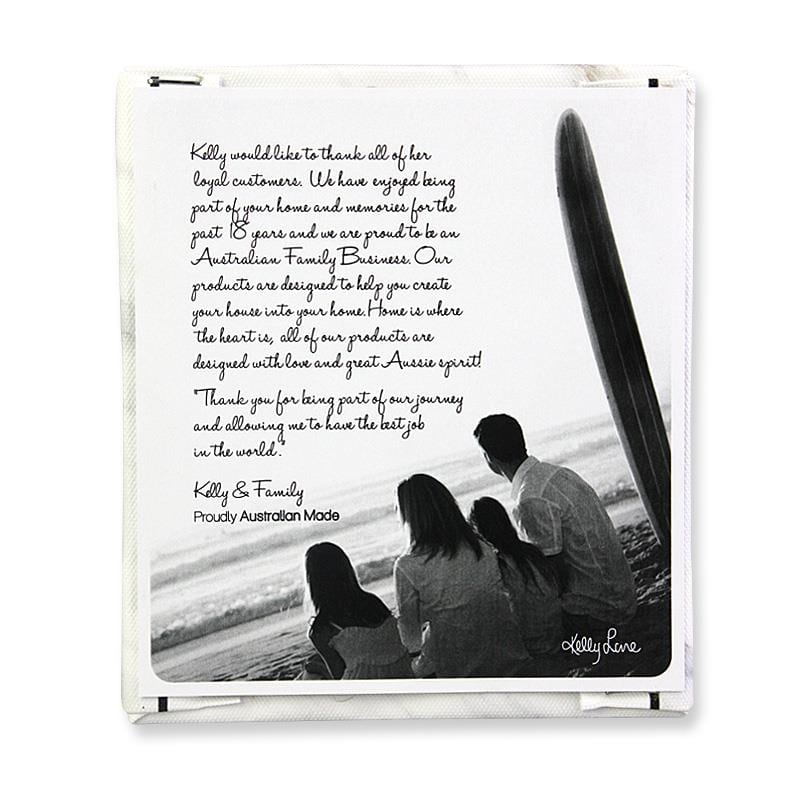 Kelly would like to thank all of her
loyal customers. We have enjoyed being
part of your home and memories for the
past 18 years and we are proud to be an
Australian Family Business. Our
products are designed to help you create
your house into your home. Home is where
the heart is, all of our products are
designed with love and great Aussie spirit!
"Thank you for being part of our journey
and allowing me to have the best job
in the world."
Kelly & Family
Proudly Australian Made
Kelly Lane